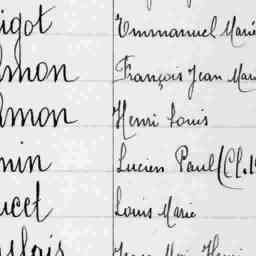 igot Emmanuel Marie
lmon François Jean Mari
lmon Henri Louis
nin Lucien Paul (Cl.1
ucet Louis Marie